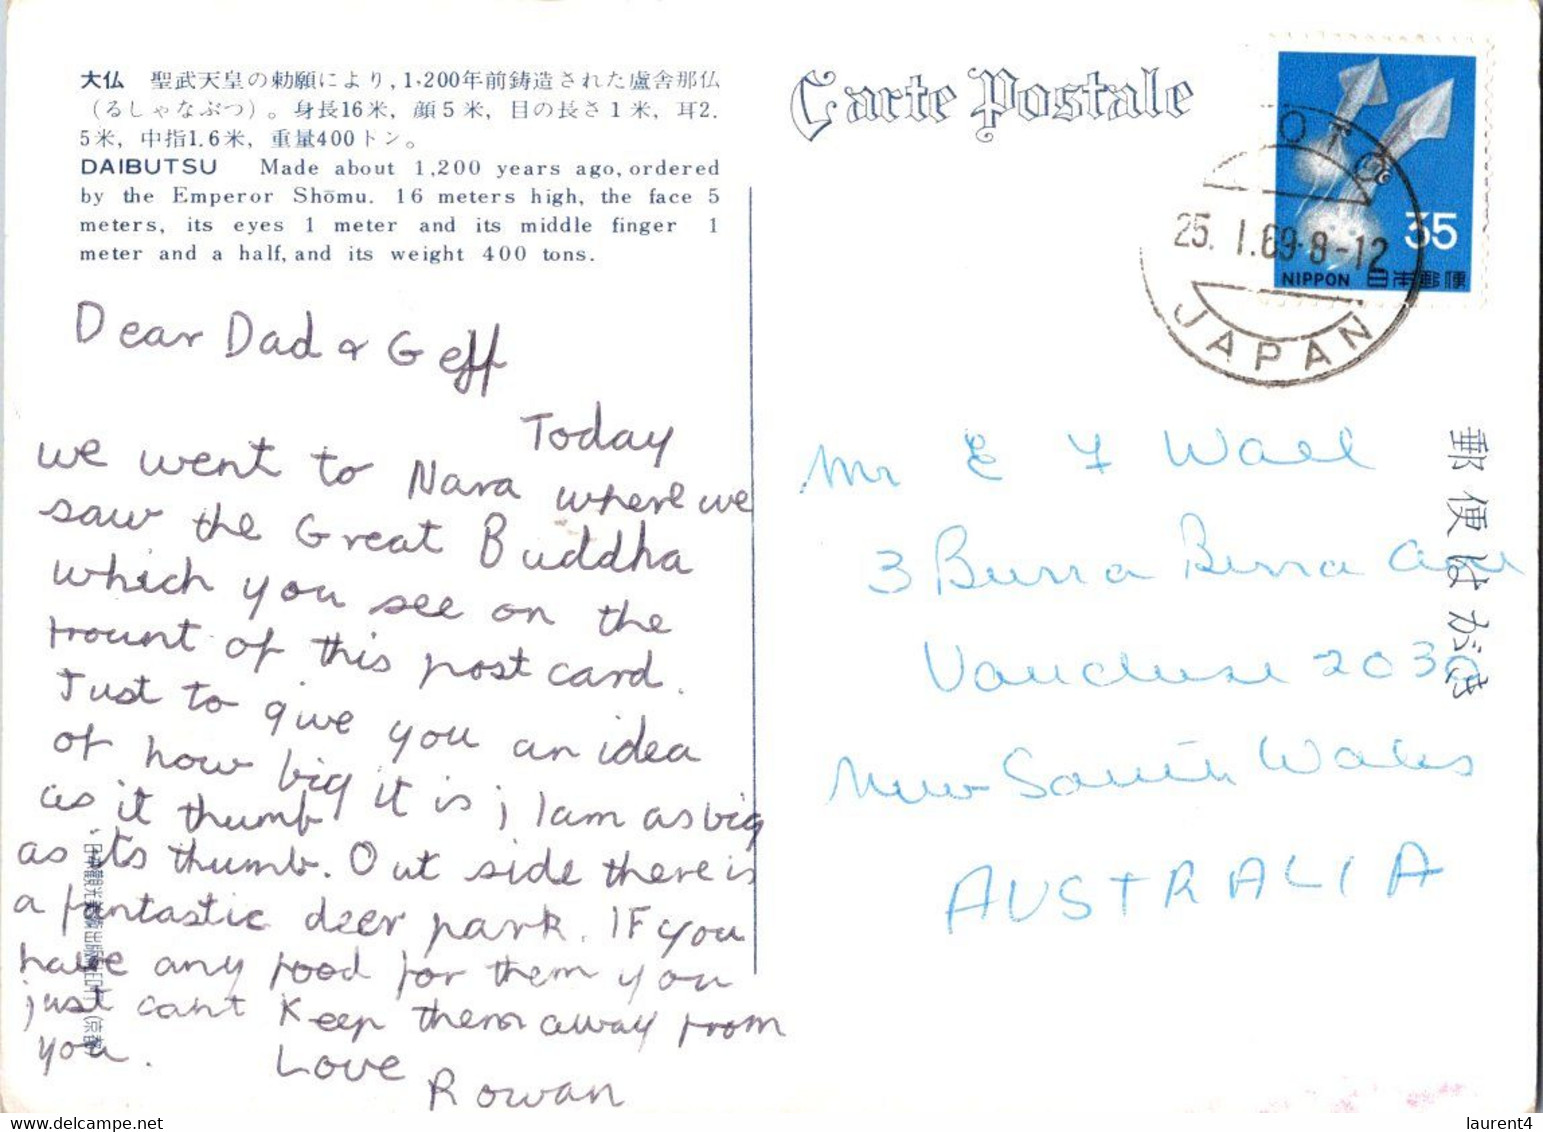 大仏　聖武天皇の勅願により，1,200年前鋳造された盧舎那仏
（るしゃなぶつ）。身長16米，顔5米，目の長さ1米，耳2.
5米，中指1.6米，重量400トン。
DAIBUTSU Made about 1,200 years ago, ordered
by the Emperor Shōmu. 16 meters high, the face 5
meters, its eyes 1 meter and its middle finger 1
meter and a half, and its weight 400 tons.
Dear Dad & Geff
Today
we went to Nara where we
saw the Great Buddha
which you see on the
frount of this post card.
Just to give you an idea
of how big it is ; I am as big
as it thumb
as its thumb. Out side there is
a fantastic deer park. IF you
have any food for them you
just cant Keep them away from
you.
Love
Rowan
Carte Postale
OTO
25.1.69.8-12
JAPAN
35
NIPPON 日本郵便
郵便はがき
Mr E F Wall
3 Burra Burra Ave
Vaucluse 2030
New South Wales
AUSTRALIA
delcampe.net
laurent4